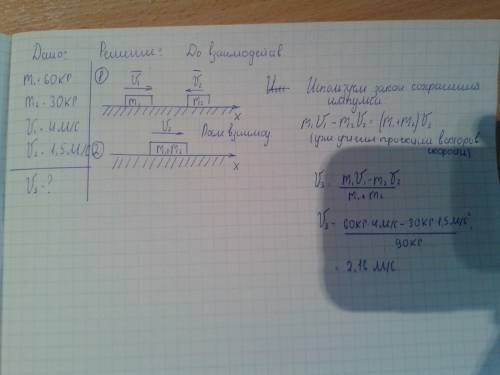 Дано:
m₁=60кг
m₂=30кг
V₁=4м/с
V₂=1,5м/с
V₃=?
Решение: До взаимодейств
①
V₁ V₂
m₁ m₂
x
②
V₃ После взаимод.
m₁+m₂
x
Используем закон сохранения
импульса
m₁V₁-m₂V₂=(m₁+m₂)V₃
(при учёте проекции векторов
скорости)
V₃=
m₁V₁-m₂V₂
m₁+m₂
V₃=
60кг·4м/с-30кг·1,5м/с
90кг
= 2.16 м/с